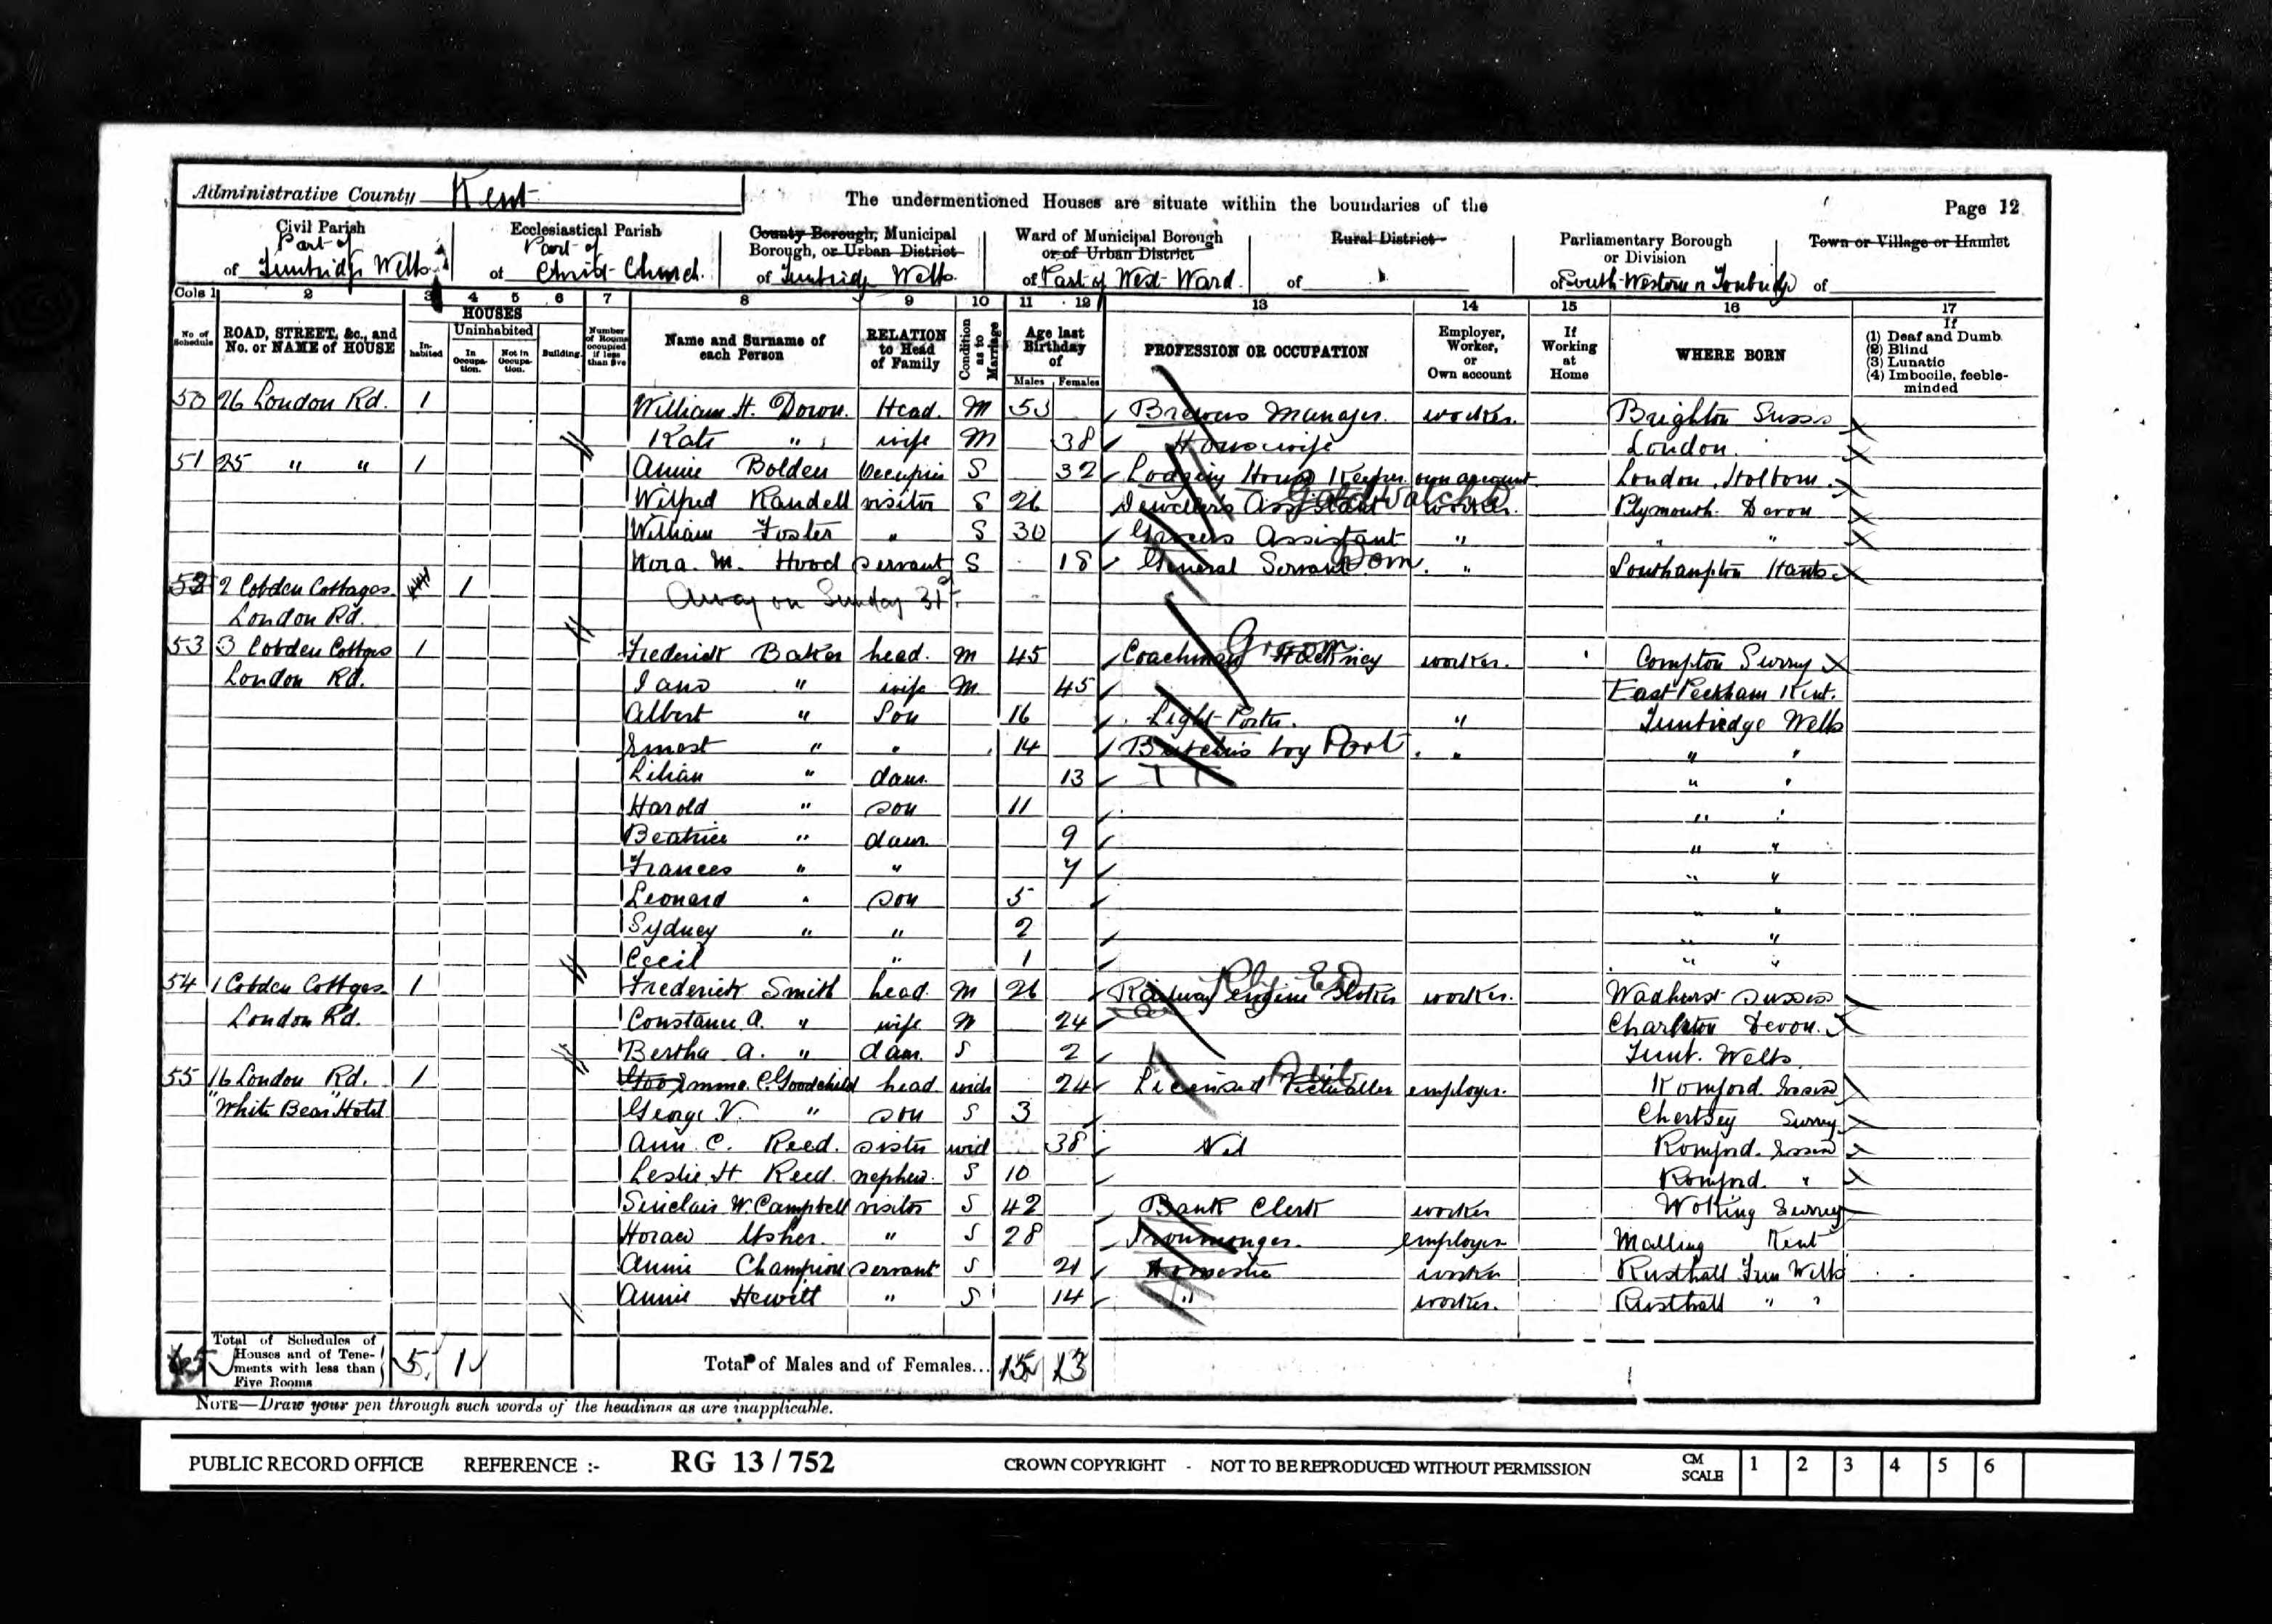 Administrative County Kent
The undermentioned Houses are situate within the boundaries of the
Page 12
Civil Parish
Part of
of Tunbridge Wells
Ecclesiastical Parish
Part of
of Christ Church.
County Borough, Municipal
Borough, or Urban District
of Tunbridge Wells
Ward of Municipal Borough
or of Urban District
of Part of West Ward.
Rural District
of
Parliamentary Borough
or Division
of South Western n Tonbridge
Town or Village or Hamlet
of
Cols 1 2 3 4 5 6 7 8 9 10 11 12 13 14 15 16 17
No. of Schedule
ROAD, STREET, &c., and No. or NAME of HOUSE
HOUSES
In-habited
Uninhabited
In Occupa-tion.
Not in Occupa-tion.
Building.
Number of Rooms occupied if less than five
Name and Surname of each Person
RELATION to Head of Family
Condition as to Marriage
Age last Birthday of
Males Females
PROFESSION OR OCCUPATION
Employer, Worker, or Own account
If Working at Home
WHERE BORN
If
(1) Deaf and Dumb
(2) Blind
(3) Lunatic
(4) Imbecile, feeble-minded
50 26 London Rd. 1 William H. Down. Head. M 53 Brewers Manager. worker. Brighton Sussex
Kate " wife M 38 Housewife London.
51 25 " " 1 Annie Bolden Occupier S 32 Lodging House Keeper own account London. Holborn.
Wilfred Randell visitor S 26 Jewellers Assistant Gold Watch D worker. Plymouth Devon
William Foster " S 30 Grocers Assistant " " "
Nora. M. Hood servant S 18 General Servant Dom. " Southampton Hants
52 2 Cobden Cottages 1 Away on Sunday 31st.
London Rd.
53 3 Cobden Cottges 1 Frederick Baker head. M 45 Coachman Hackney Groom worker. Compton Surrey
London Rd. Jane " wife M 45 East Peckham Kent.
Albert " Son 16 Light Porter. " Tunbridge Wells
Ernest " " 14 Butchers boy Port. " " "
Lilian " daur. 13 " "
Harold " son 11 " "
Beatrice " daur. 9 " "
Frances " " 7 " "
Leonard " son 5 " "
Sydney " " 2 " "
Cecil " 1 " "
54 1 Cobden Cottges. 1 Frederick Smith head. M 26 Railway Engine Stoker worker. Wadhurst Sussex
London Rd. Constance. A. " wife M 24 Charleton Devon.
Bertha A. " daur. S 2 Tunb. Wells.
55 16 London Rd. 1 Emma. C. Goodchild head wid 24 Licensed Victualler employer. Romford. Essex
"White Bear" Hotel George V. " son S 3 Chertsey Surrey
Ann. C. Reed. sister wid 38 Nil Romford. Essex
Leslie. H Reed. nephew. S 10 Romford. "
Sinclair W. Campbell visitor S 42 Bank Clerk worker Woking Surrey
Horace Usher. " S 28 Ironmonger. employer Malling Kent
Annie Champion servant S 21 Domestic worker Rusthall Tun Wells
Annie Hewitt " S 14 " worker. Rusthall " "
Total of Schedules of Houses and of Tene-ments with less than Five Rooms 5 1
Total of Males and of Females... 15 13
NOTE—Draw your pen through such words of the headings as are inapplicable.
PUBLIC RECORD OFFICE REFERENCE :- RG 13 / 752 CROWN COPYRIGHT - NOT TO BE REPRODUCED WITHOUT PERMISSION CM SCALE 1 2 3 4 5 6